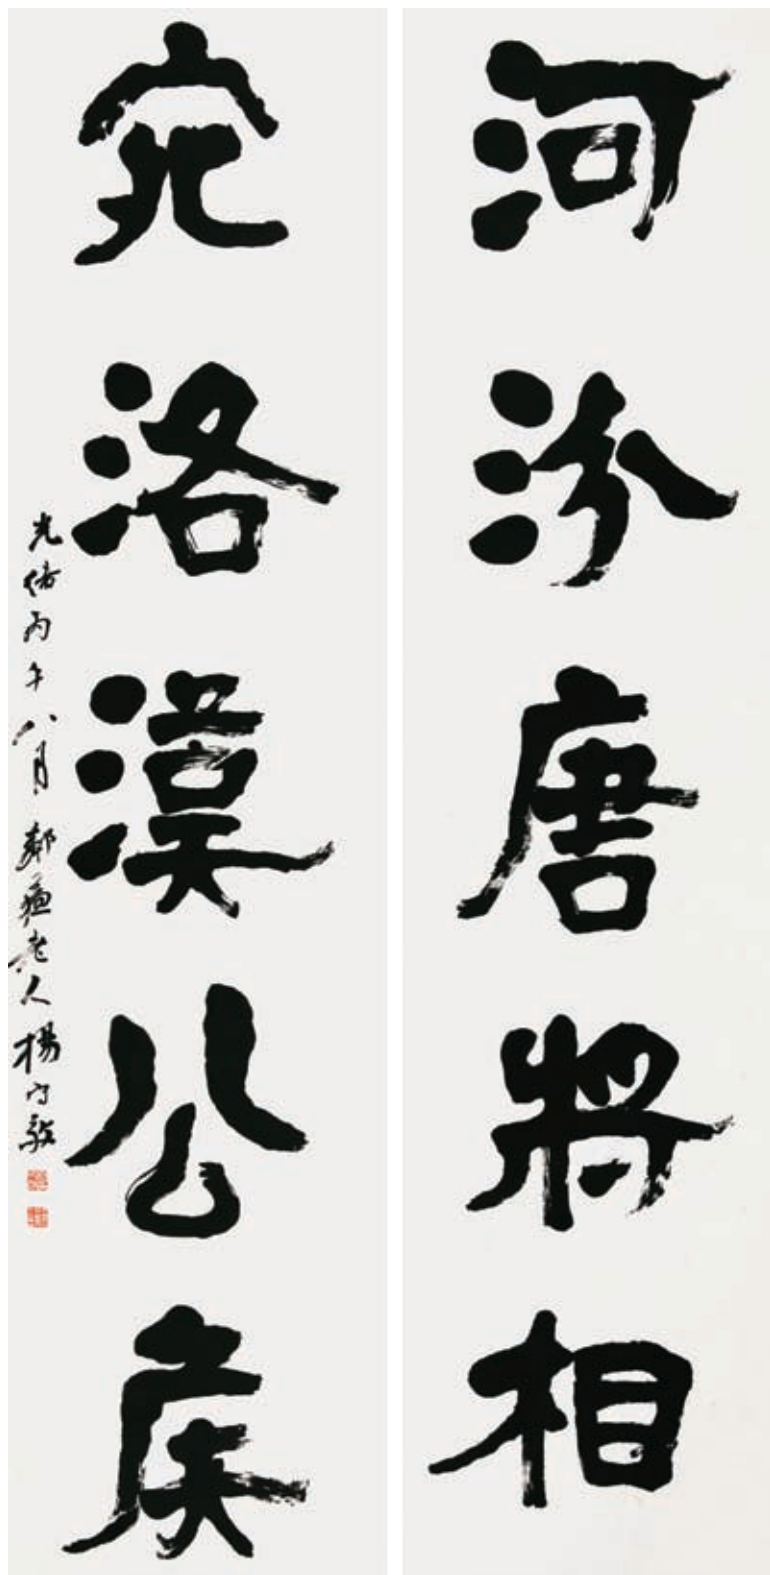 河汾唐將相
宛洛漢公侯
光緒丙午八月鄰蘇老人楊守敬